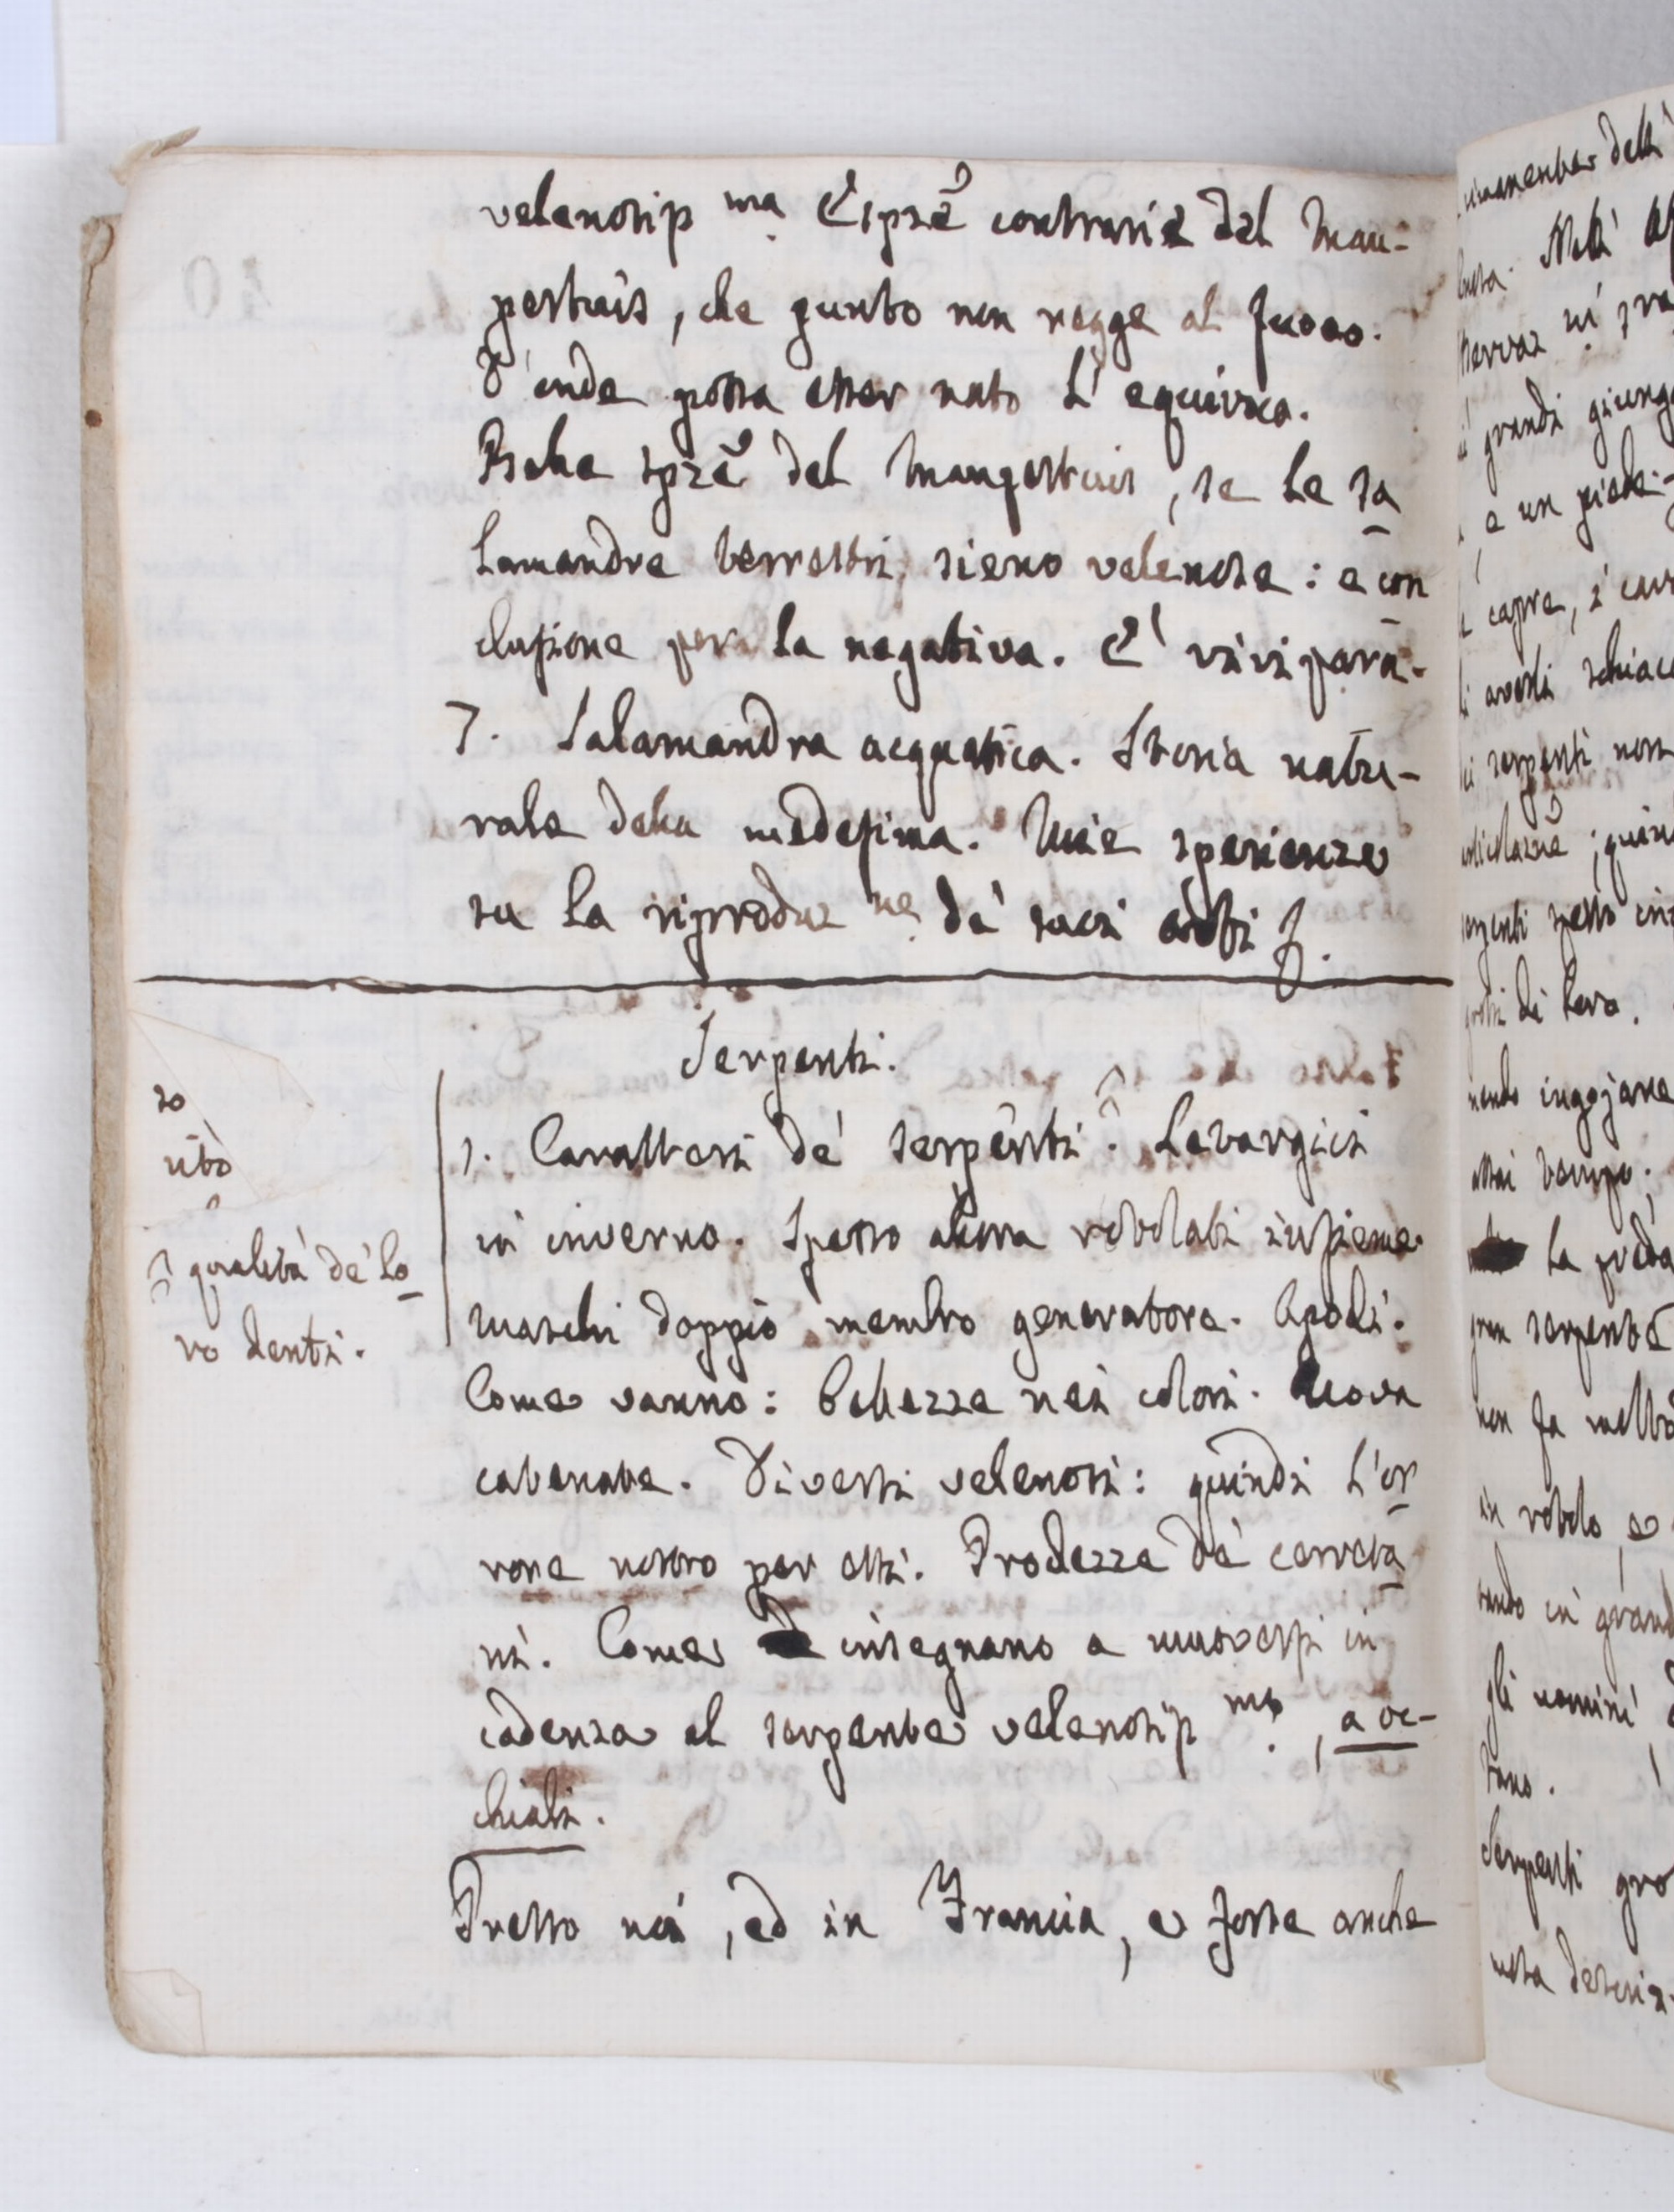 velenosiss.ma Esprẽ contrarie del Mau-
pertuis, che punto non regge al fuoco.
D'onde possa esser nato l'equivoco.
Altre sprẽ del Maupertuis, se le sa
lamandre terrestri sieno velenose: e con
clusione per la negativa. E' vivipara.
7. Salamandra acquatica. Storia natu-
rale della medesima. Mie sperienze
su la riproduz.ne de' suoi arti
Serpenti.
1. Caratteri de' serpenti. Letargici
in inverno. Spesso allora rotolati insieme.
maschi doppio membro generatore. Apodi.
Come vanno: Bellezza nei colori. Uova
catenate. Diversi velenosi: quindi l'or
rore nostro per essi. Prodezze de' cerreta
ni. Come insegnano a muoversi in
cadenza al serpente velenosiss.mo, a oc-
chiali.
Presso noi, ed in Francia, e forse anche
so
uto
qualità de' lo
ro denti.
rimanenter della
Nell'
grandi giung
e un piede-
capre, i cav
averli schiac
serpenti non
serpenti spesso
di loro.
nendo ingojare
assai tempo.
la preda
gran serpente
non fa mollto
in rotolo, e
rando in grand
gli uomini
Serpenti gro